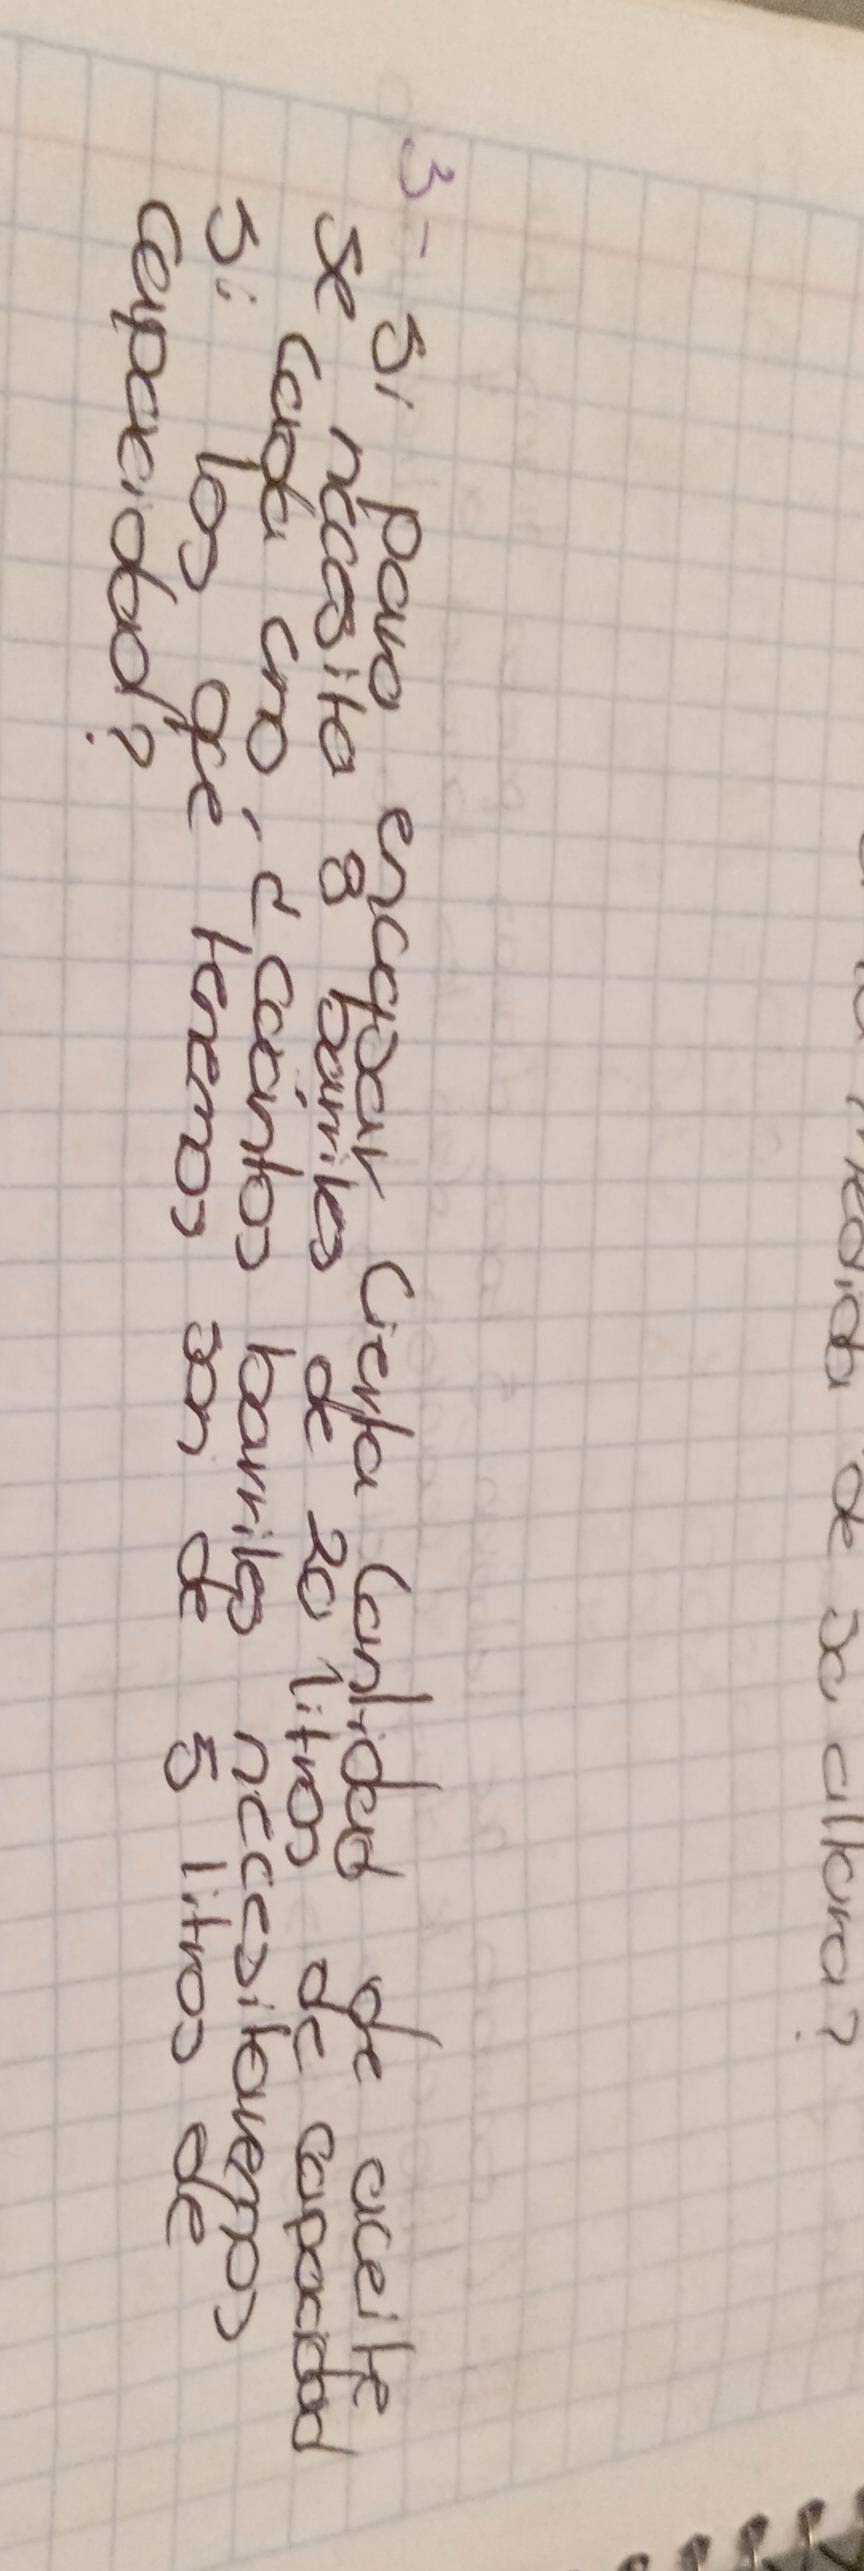 de su altura?
3- Si para encapar cierta cantidad de aceite
se necesita 8 barriles de 20 litros de capacidad
cada uno, ¿cuántos barriles necesitaremos
si los que tenemos son de 5 litros de
capacidad?